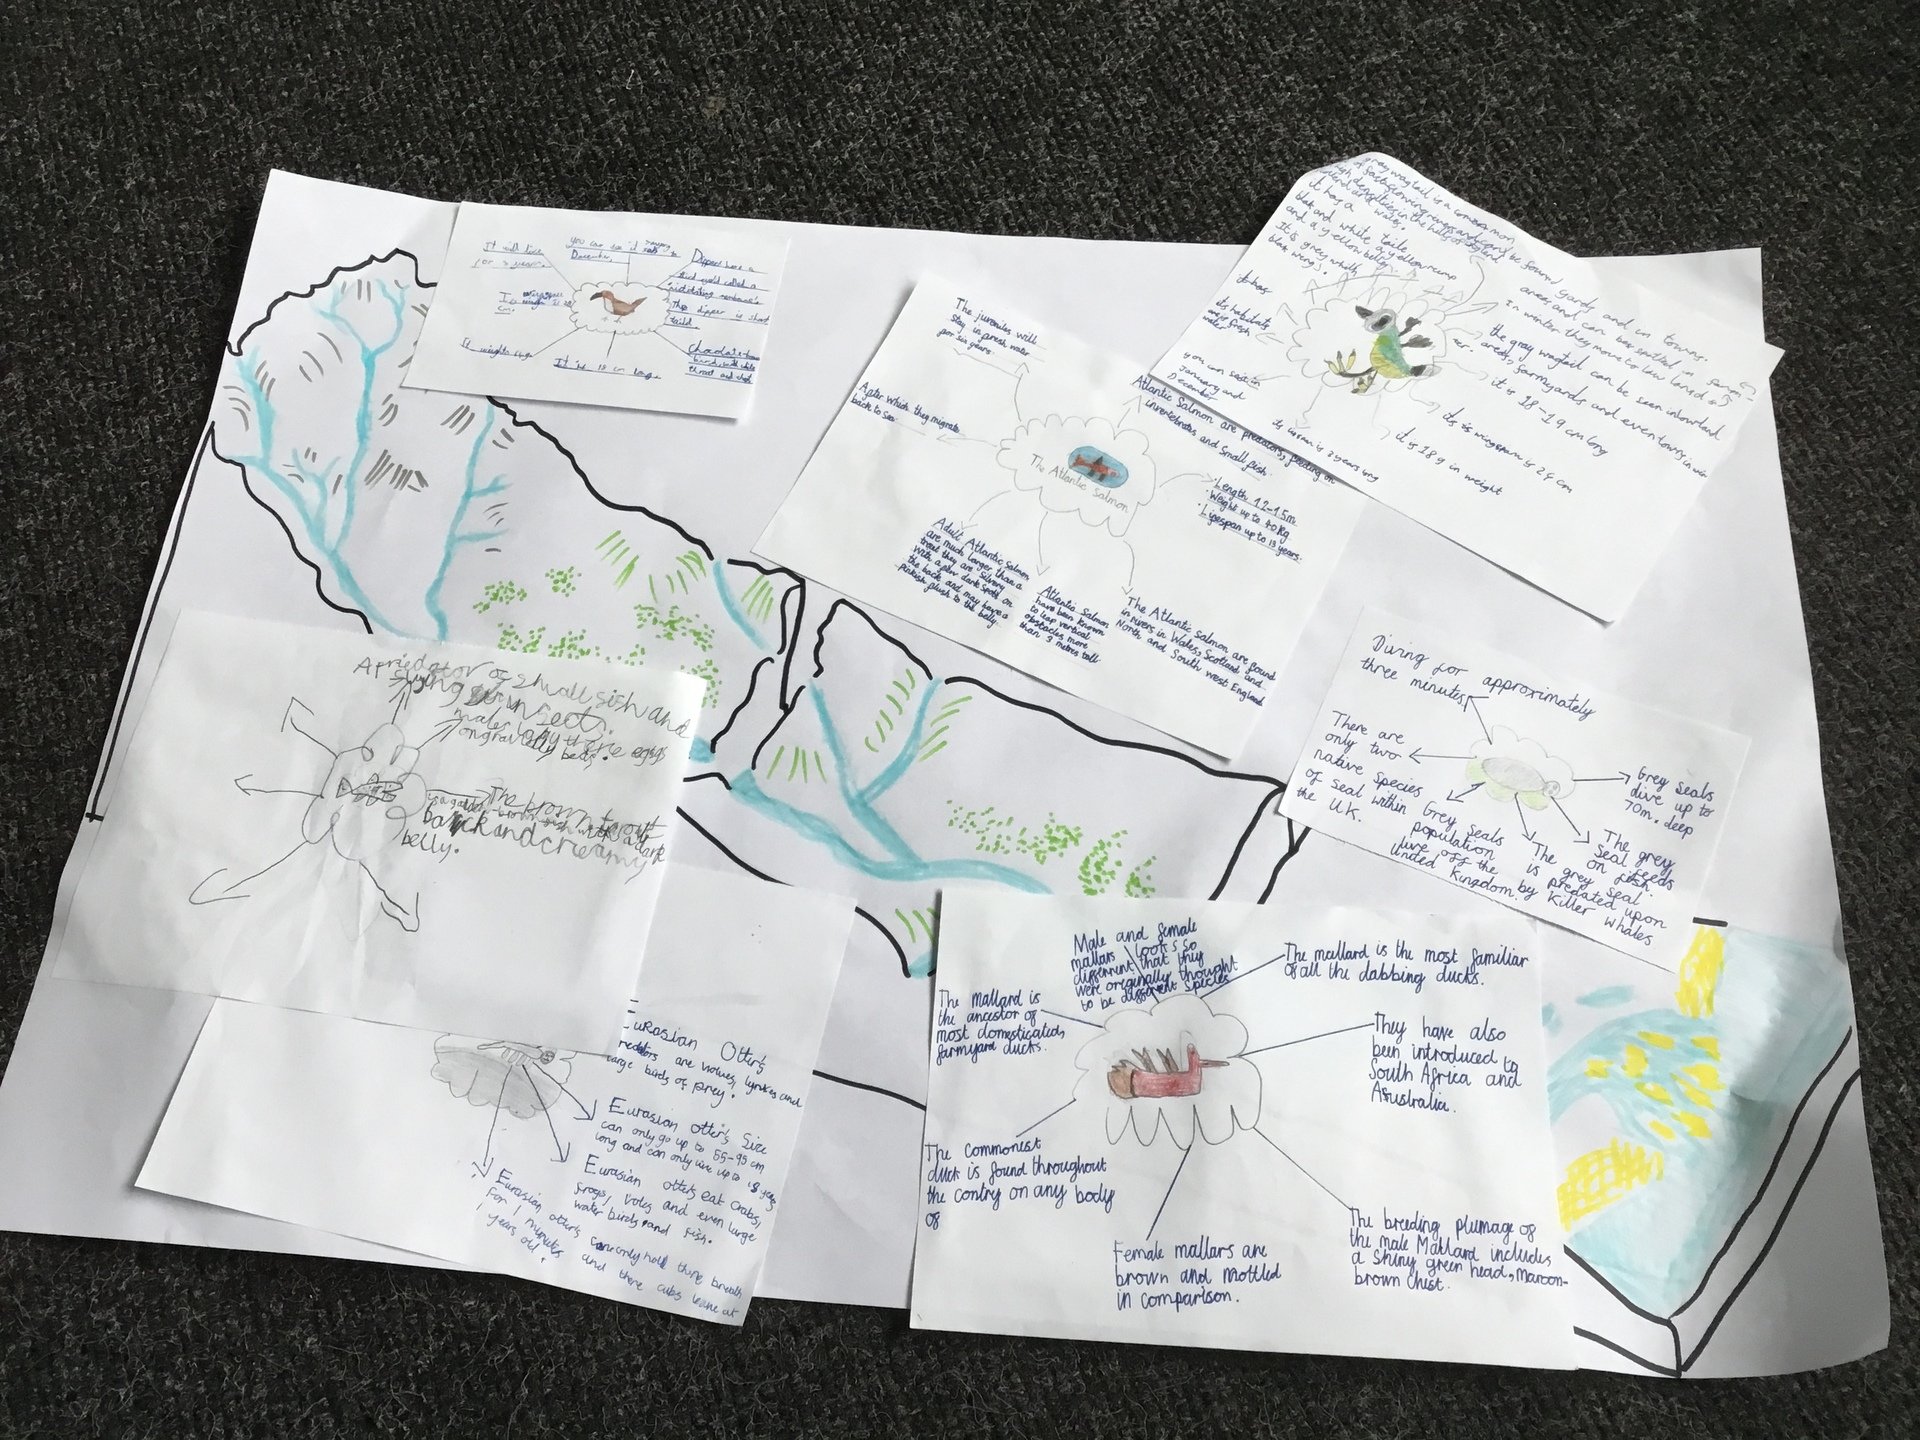 It will live
for 3 years.
you can see it
December.
Dipper have a
third eyelid called a
The dipper is short
taild
It weights
It is 18 cm long
Chocolate-brown
throat and chest
The juveniles will
stay in fresh water
for six years.
After which they migrate
back to sea
Atlantic Salmon are predators, feeding on
invertebrates and small fish.
The Atlantic Salmon
· Length 1.2-1.5m
· Weight up to 40kg
· Lifespan up to 13 years.
Adult Atlantic Salmon
are much larger than a
trout they are silvery
with a few dark spots on
the back and may have a
pinkish flush to the belly.
Atlantic Salmon
have been known
to leap vertical
obstacles more
than 3 metres tall
The Atlantic Salmon are found
in rivers in Wales, Scotland and
North and South west England
gray wagtail is a common
of fast flowing rivers and can be found
high densities in the hills of England
wales.
it has a
blak and white taile a yellow rump
and a yellow belley
It is grey whith
blak wengs.
it has
its habitats
are fresh
water
you can see in
january and
December
yards and in towns.
areas and can be spotted in
In winter they move to low land
the gray wagtail can be seen inlowland
areas, farmyards and even towns in win
er.
it is 18-19 cm long
its wingspan is 24 cm
it is 18 g in weight
is 3 years long
Diving for approximately
three minutes
There are
only two
native species
of seal within
the U.K.
Grey Seals
dive up to
70m. deep
The grey
seal feeds
on fish.
Grey Seals
population
live off the
united Kingdom
The grey seal
is predated upon
by Killer whales
A Priedator of small fish and
flying insect.
males lay there eggs
on gravelly beds.
The brown trout
is a golden-brown fish with a dark
back and creamy
belly.
Eurasian Otters
predators are wolves, lynxes and
large birds of prey.
Eurasian otter's size
can only go up to 55-95 cm
long and can only live up to 18 years
Eurasian otters eat crabs,
frogs, voles and even large
water birds and fish.
Eurasian otters can only hold there breath
for 1 minutes and there cubs leave at
1 years old.
Male and female
mallars look's so
different that they
were originally thought
to be different species
The mallard is the most familiar
of all the dabbing ducks.
The mallard is
the ancestor of
most domesticated
farmyard ducks.
They have also
been introduced to
South Africa and
Australia.
The commonest
duck is found throughout
the contry on any body
of
Female mallars are
brown and mottled
in comparison.
The breeding plumage of
the male Mallard includes
a shiny green head, maroon-
brown chest.